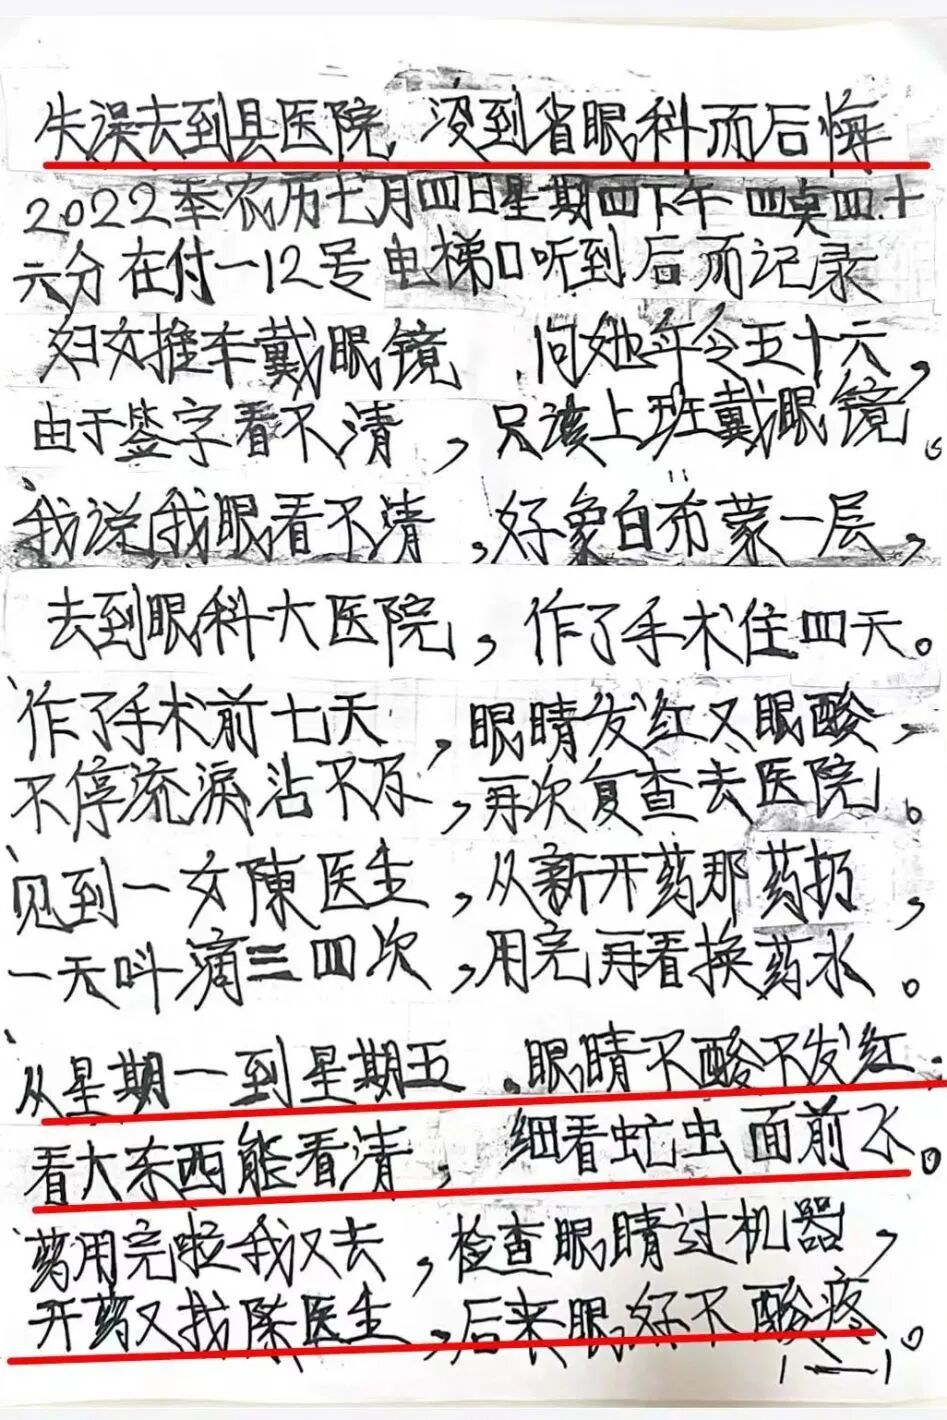 失误去到县医院 没到省眼科而后悔
2022年农历七月四日星期四下午 四点四十
六分在付一12号电梯口听到后而记录
妇女推车戴眼镜 问她年令五十六,
由于签字看不清,只该上班戴眼镜。
我说我眼看不清,好象白布蒙一层,
去到眼科大医院,作了手术住四天。
作了手术前七天,眼睛发红又眼酸,
不停流淚沾不及,再次复查去医院。
见到一女陳医生,从新开药那药扔,
一天叫滴三四次,用完再看换药水。
从星期一到星期五.眼睛不酸不发红.
看大东西能看清,细看虻虫面前飞。
药用完啦我又去,检查眼睛过机器,
开药又找陈医生,后来眼好不酸疼。